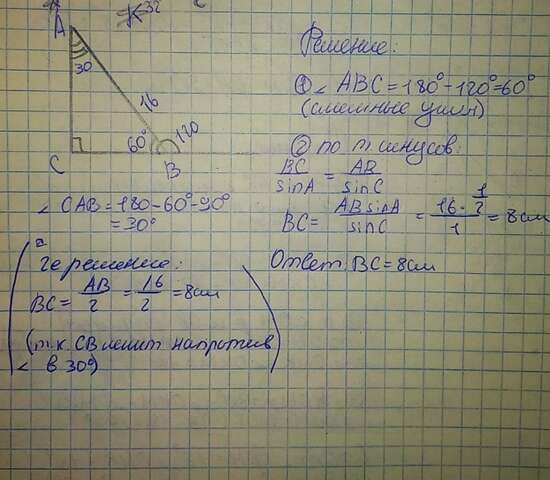 A
30
16
60°
120
C
B
∠ CAB = 180 - 60° - 90°
= 30°
2е решение:
BC = AB/2 = 16/2 = 8см
(т.к. CB лежит напротив
∠ в 30°)
Решение:
① ∠ ABC = 180° - 120° = 60°
(смежные углы)
② по т. синусов:
BC/sinA = AB/sinC
BC = AB sinA/sinC = 16 · 1/2 / 1 = 8см
Ответ: BC = 8см